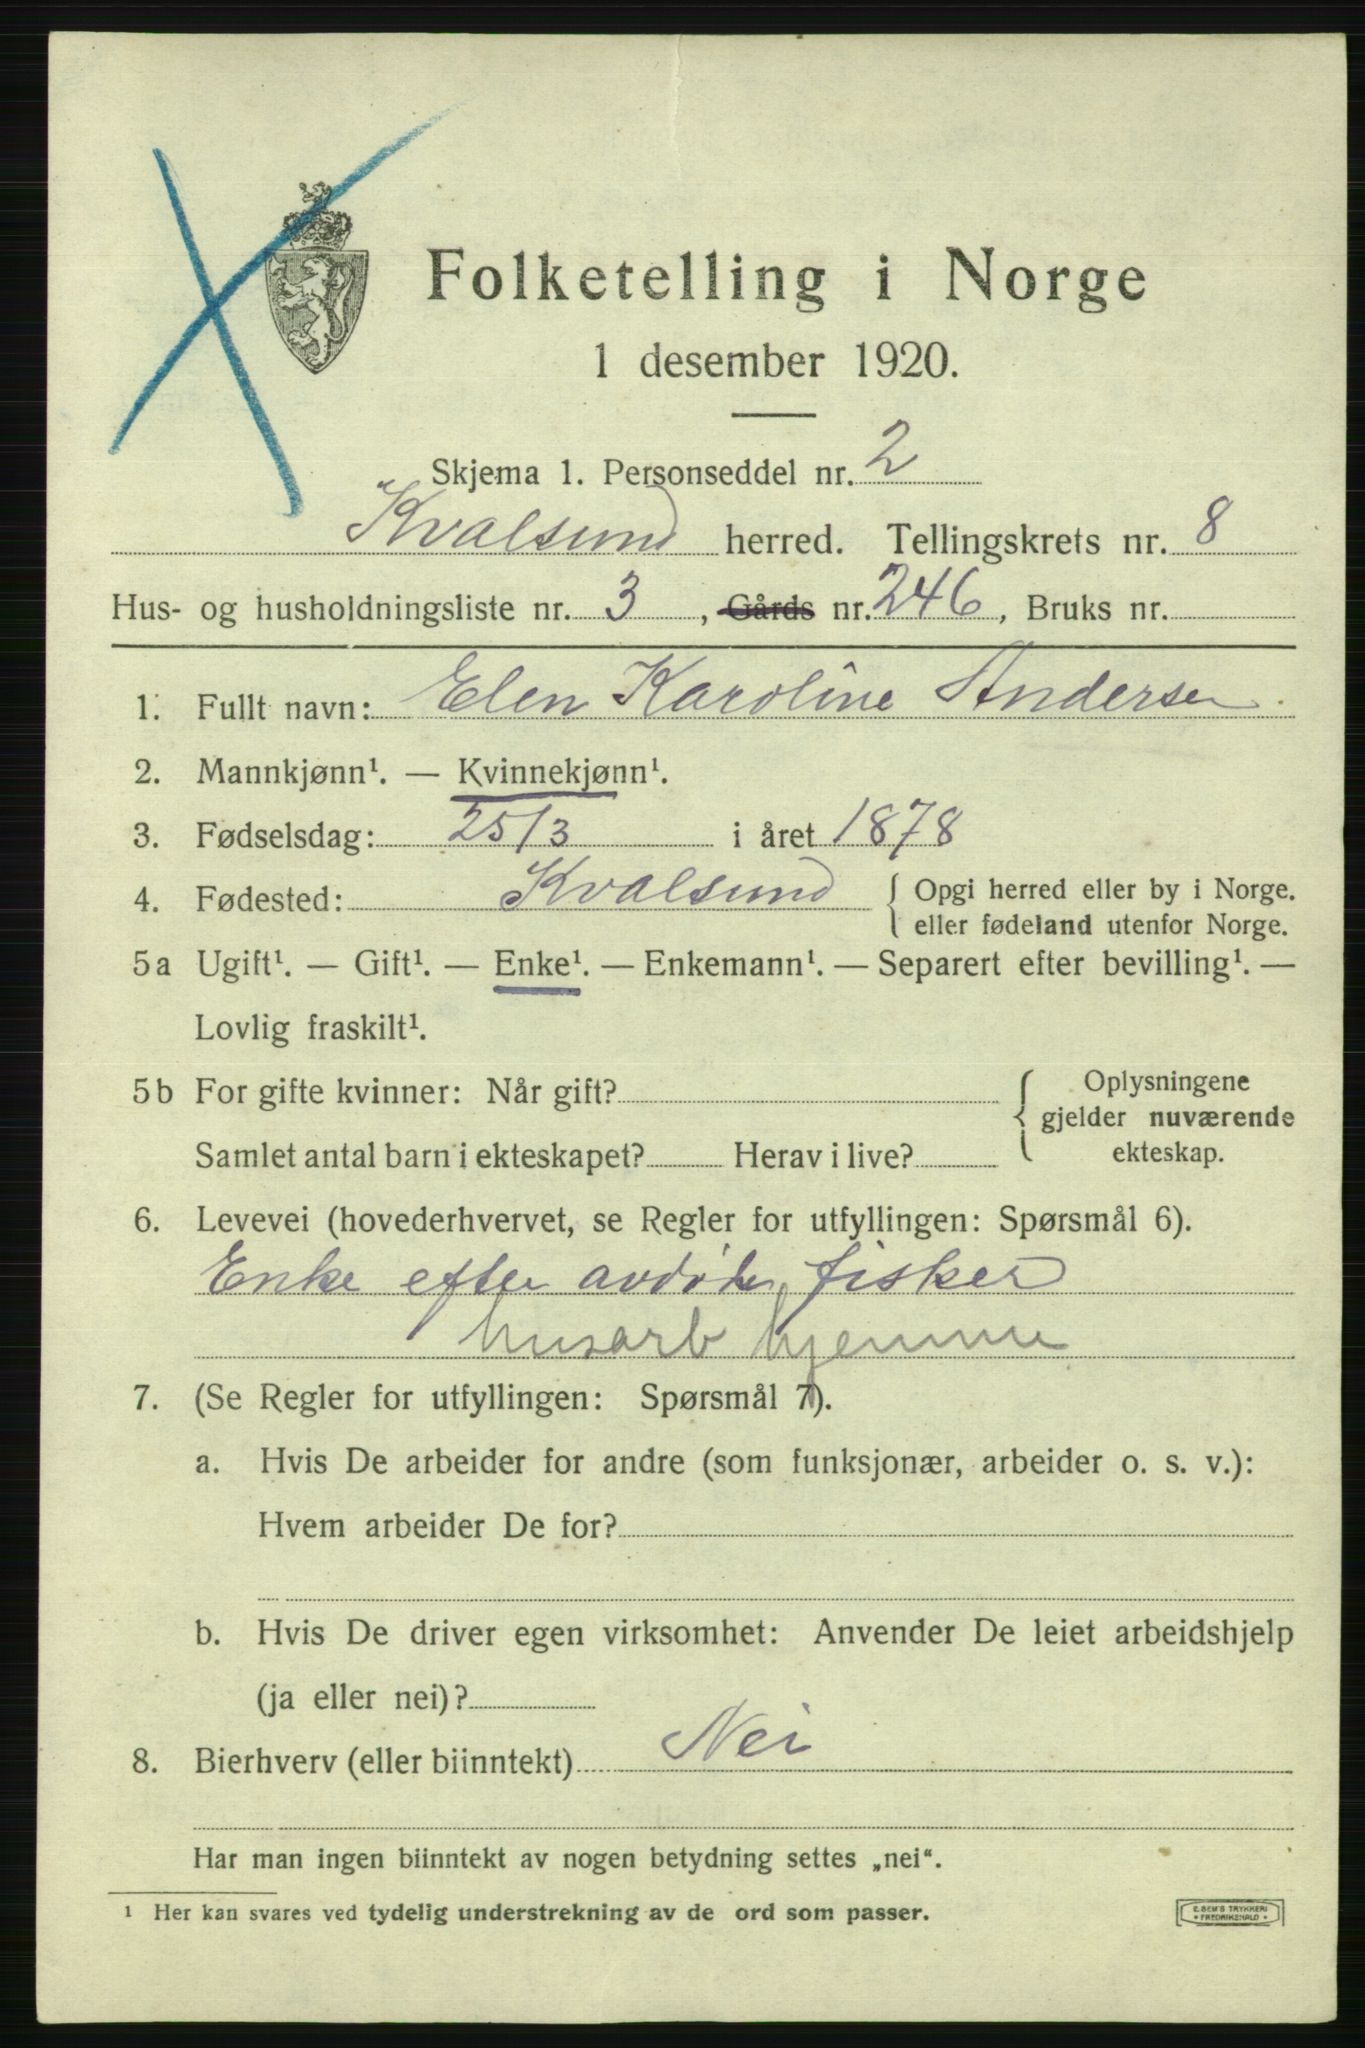 Folketelling i Norge
1 desember 1920.
Skjema 1. Personseddel nr. 2
Kvalsund herred. Tellingskrets nr. 8
Hus- og husholdningsliste nr. 3, Gårds nr. 246, Bruks nr.
1. Fullt navn: Elen Karoline Andersen
2. Mannkjønn¹. — Kvinnekjønn¹.
3. Fødselsdag: 25/3 i året 1878
4. Fødested: Kvalsund { Opgi herred eller by i Norge.
eller fødeland utenfor Norge.
5a Ugift¹. — Gift¹. — Enke¹. — Enkemann¹. — Separert efter bevilling¹. —
Lovlig fraskilt¹.
5b For gifte kvinner: Når gift?
Samlet antal barn i ekteskapet? Herav i live?
Oplysningene
gjelder nuværende
ekteskap.
6. Levevei (hovederhvervet, se Regler for utfyllingen: Spørsmål 6).
Enke efter avdøde fisker
husarb hjemme
7. (Se Regler for utfyllingen: Spørsmål 7).
a. Hvis De arbeider for andre (som funksjonær, arbeider o. s. v.):
Hvem arbeider De for?
b. Hvis De driver egen virksomhet: Anvender De leiet arbeidshjelp
(ja eller nei)?
8. Bierhverv (eller biinntekt) Nei
Har man ingen biinntekt av nogen betydning settes „nei“.
¹ Her kan svares ved tydelig understrekning av de ord som passer.
E. SEM'S TRYKKERI
FREDRIKSHALD